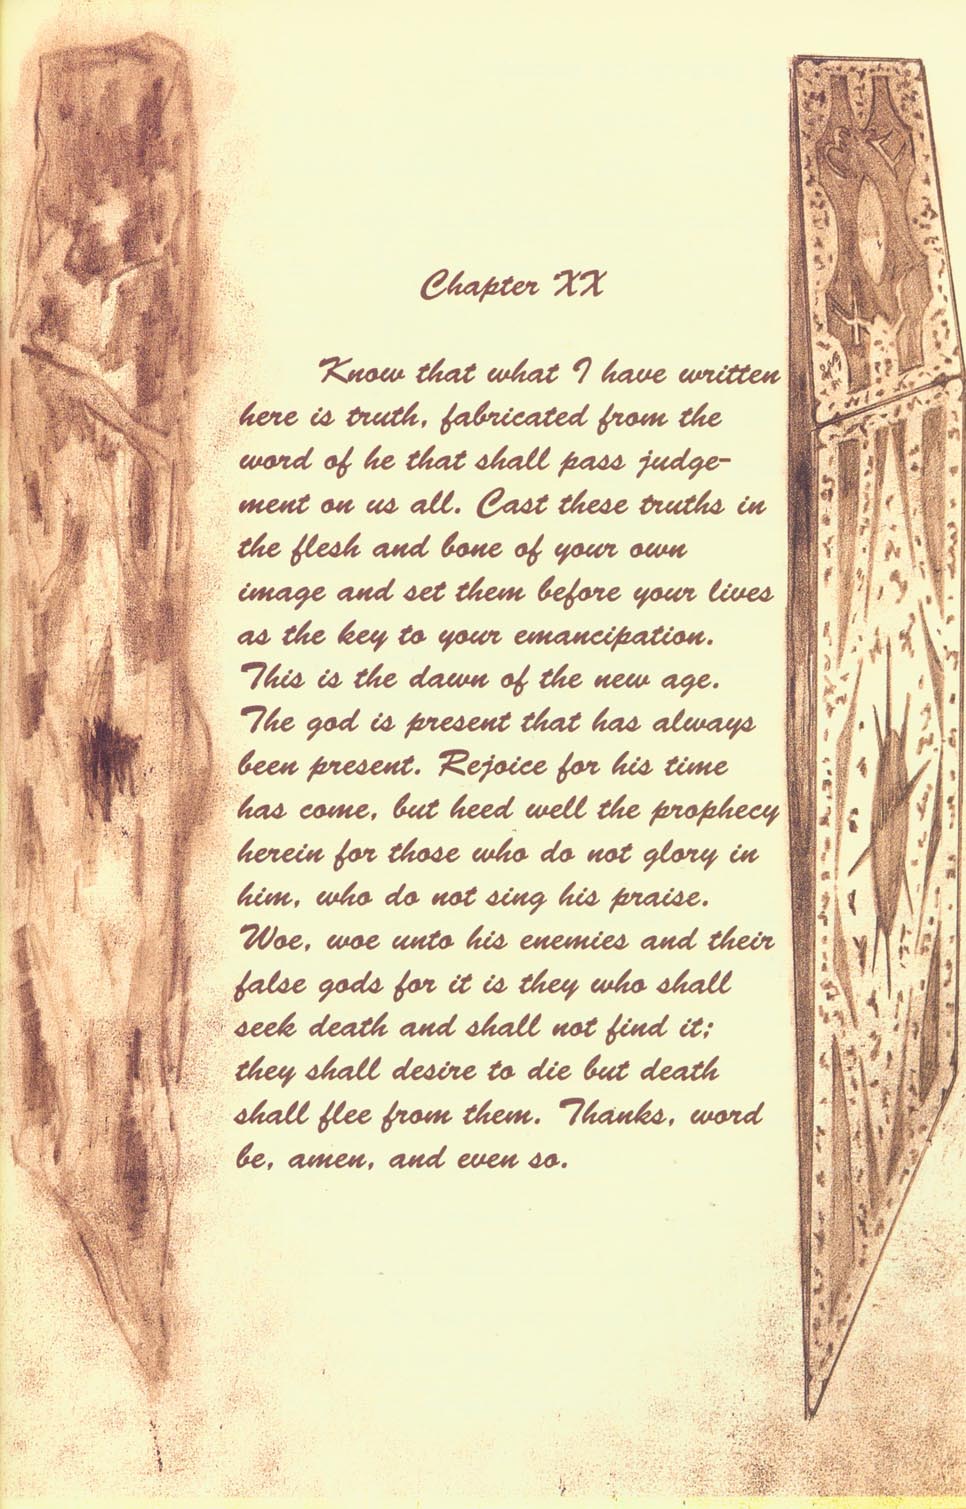 Chapter XX
Know that what I have written
here is truth, fabricated from the
word of he that shall pass judge-
ment on us all. Cast these truths in
the flesh and bone of your own
image and set them before your lives
as the key to your emancipation.
This is the dawn of the new age.
The god is present that has always
been present. Rejoice for his time
has come, but heed well the prophecy
herein for those who do not glory in
him, who do not sing his praise.
Woe, woe unto his enemies and their
false gods for it is they who shall
seek death and shall not find it;
they shall desire to die but death
shall flee from them. Thanks, word
be, amen, and even so.